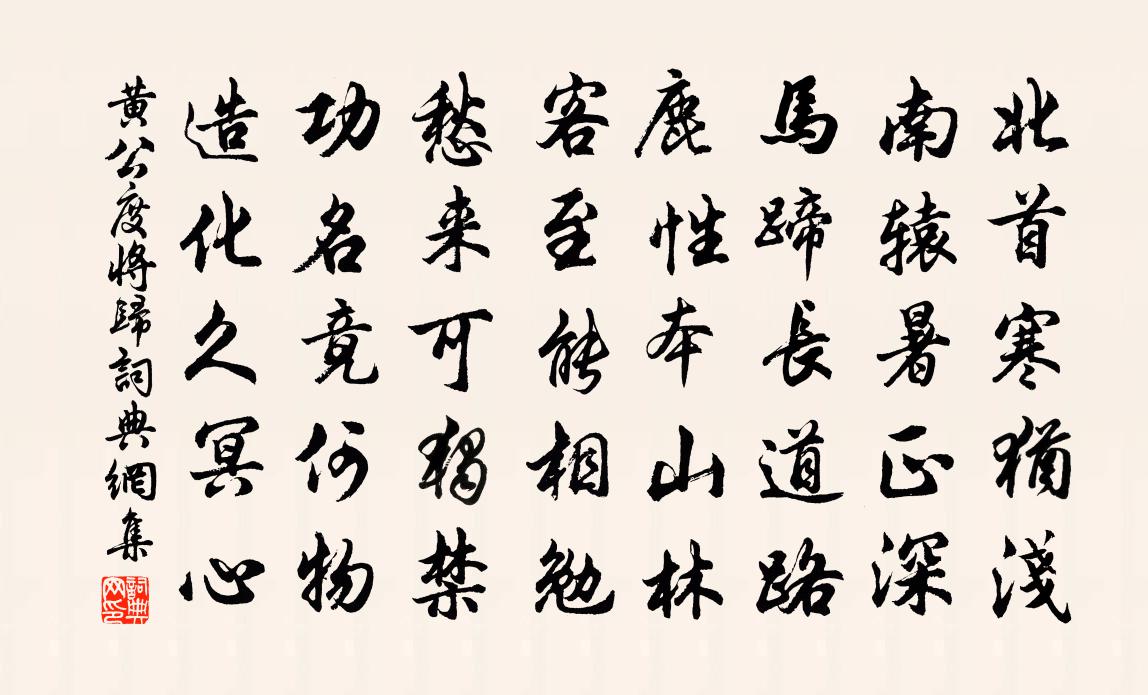 北首寒猶淺
南辕暑正深
馬蹄長道路
鹿性本山林
客至能相勉
愁来可獨禁
功名竟何物
造化久冥心
黄公度將歸詞典網集
詞典网印